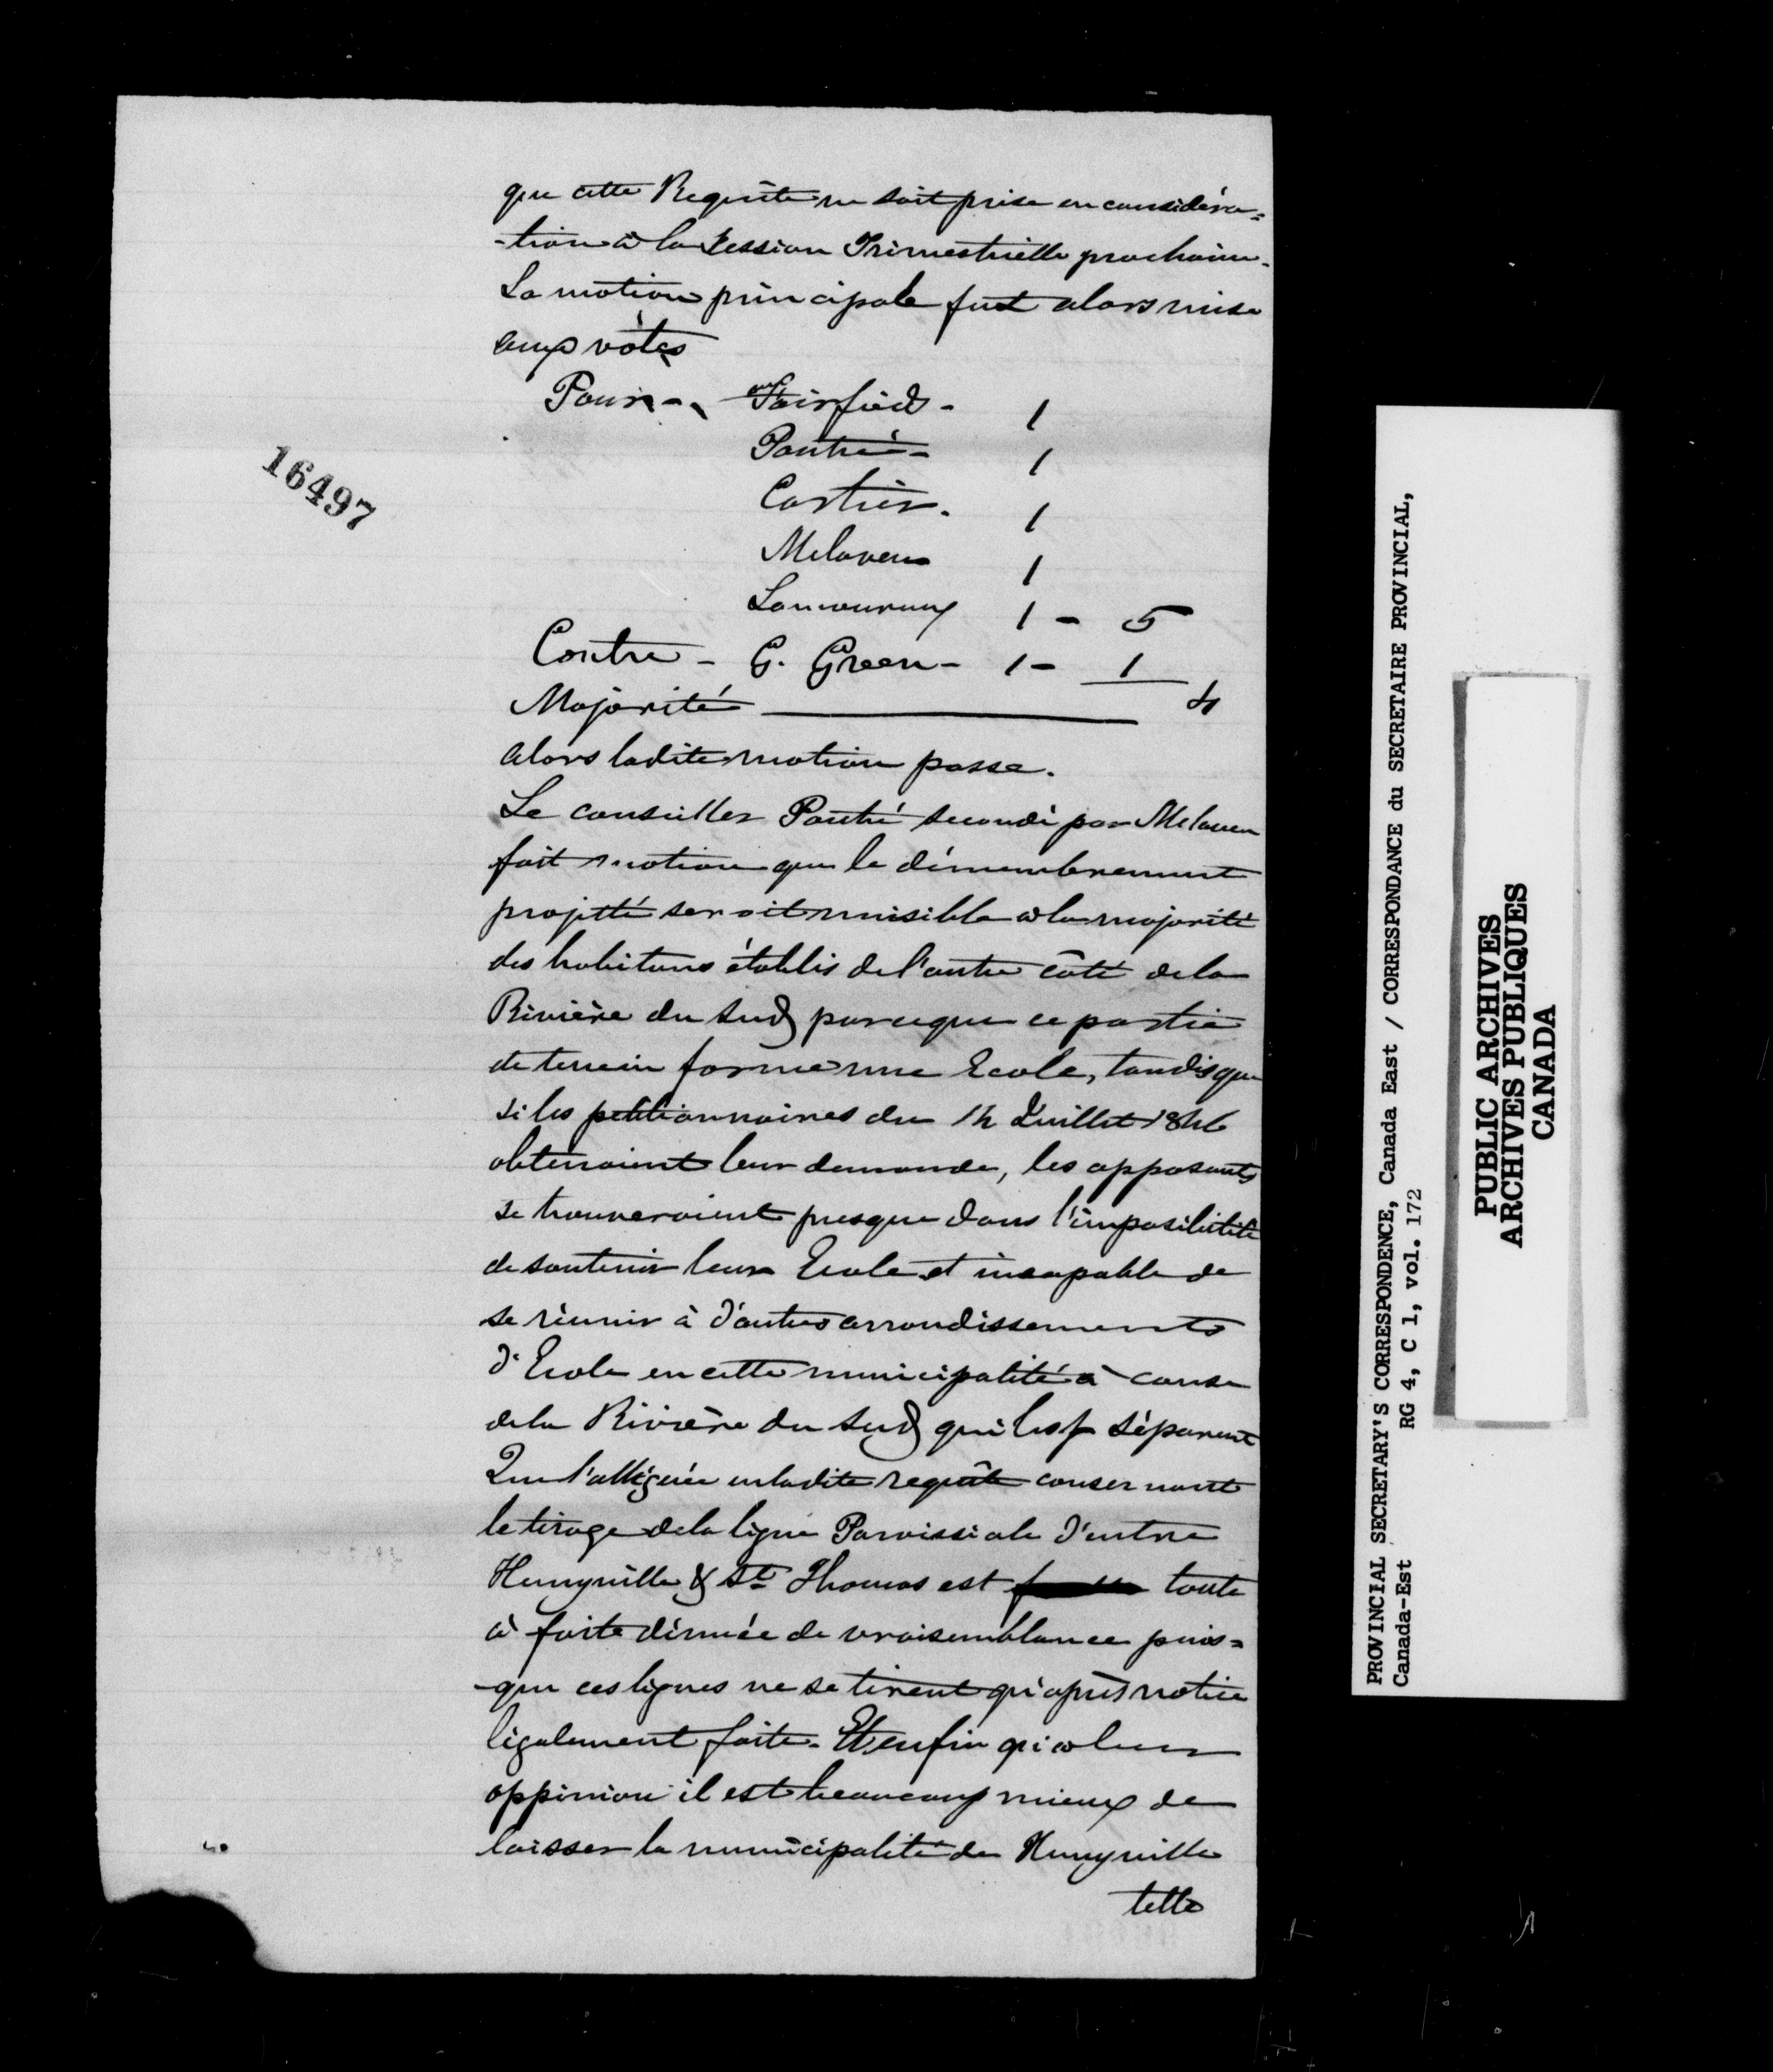 que cette Requête ne soit prise en considéra=
-tion à la Session Trimestrielle prochaine.
La motion principale fut alors mise
aux vôtes
Pour - Fairfield - 1
Poutré - 1
Cartier. 1
Melaven 1
Lamoureux 1 - 5
Contre - G. Green - 1 - 1
Majorité 4
alors ladite motion passe.
Le conseiller Poutré secondé par Melaven
fait motion que le démembrement
projetté seroit nuisible à la majorité
des habitans établis de l'autre côté de la
Rivière du Sud parceque ce partie
de terrein forme une Ecole, tandis que
si les petitionnaires du 14 Juillet 1846
obtenoient leur demande, les opposants
se trouveroient presque dans l'imposibilité
de soutenir leur Ecole et incapable de
se réunir à d'autres arrondissements
d'Ecole en cette municipalité à cause
de la Rivière du Sud qui les séparent
Que l'alléguée en ladite requête consernant
le tirage de la ligne Paroissiale d'entre
Henryville & St Thomas est toute
à faite dénuée de vraisemblance puis=
-que ces lignes ne se tirent qu'après notice
légalement faite. Et enfin qu'à leur
oppinion il est beaucoup mieux de
laisser la municipalité de Henryville
telle
16497
PROVINCIAL SECRETARY'S CORRESPONDENCE, Canada East / CORRESPONDANCE du SECRETAIRE PROVINCIAL,
Canada-Est RG 4, C 1, vol. 172
PUBLIC ARCHIVES
ARCHIVES PUBLIQUES
CANADA